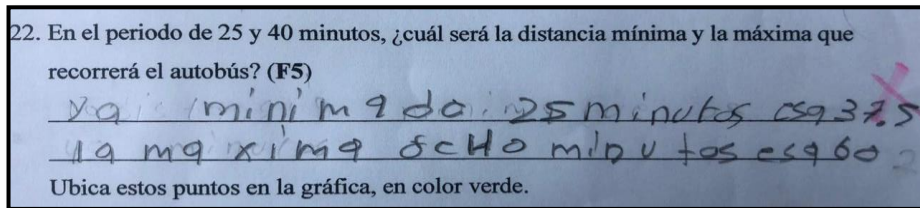 22. En el periodo de 25 y 40 minutos, ¿cuál será la distancia mínima y la máxima que
recorrerá el autobús? (F5)
minima do 25 minutos esa 37.5
la maxima ocHo minutos esa 60
Ubica estos puntos en la gráfica, en color verde.